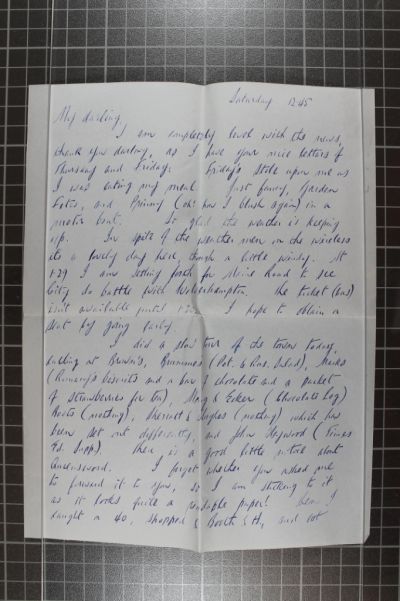 Saturday 12.45
My darling,
I am completely level with the news,
thank you darling, as I have your nice letters of
Thursday and Friday. Friday's stole upon me as
I was eating my meal. Just fancy, Garden
Fetes, and (oh! how I blush again) in a
motor boat. So glad the weather is keeping
up. In spite of the weather men on the wireless
its a lovely day here, though a little windy. At
1.29 I am setting forth for Maine Road to see
City do battle with Wolverhampton. The ticket (bus)
isn't available until 1.30 I hope to obtain a
seat by going early.
I did a slow tour of the town today,
calling at Brown's, (Pot. & Rus. Salad), Marks
(Romary's biscuits and a bar of chocolate and a packet
of strawberries for ton), (Chocolate Log)
Boots (nothing), Sherratt & Hughes (nothing) which has
been set out differently, and John Heywood (Times
Ed. Supp). There is a good little article about
I forget whether you asked me
to forward it to you, so I am sticking to it
as it looks quite a paper! Then I
caught a 40, shopped & Booth St, and got